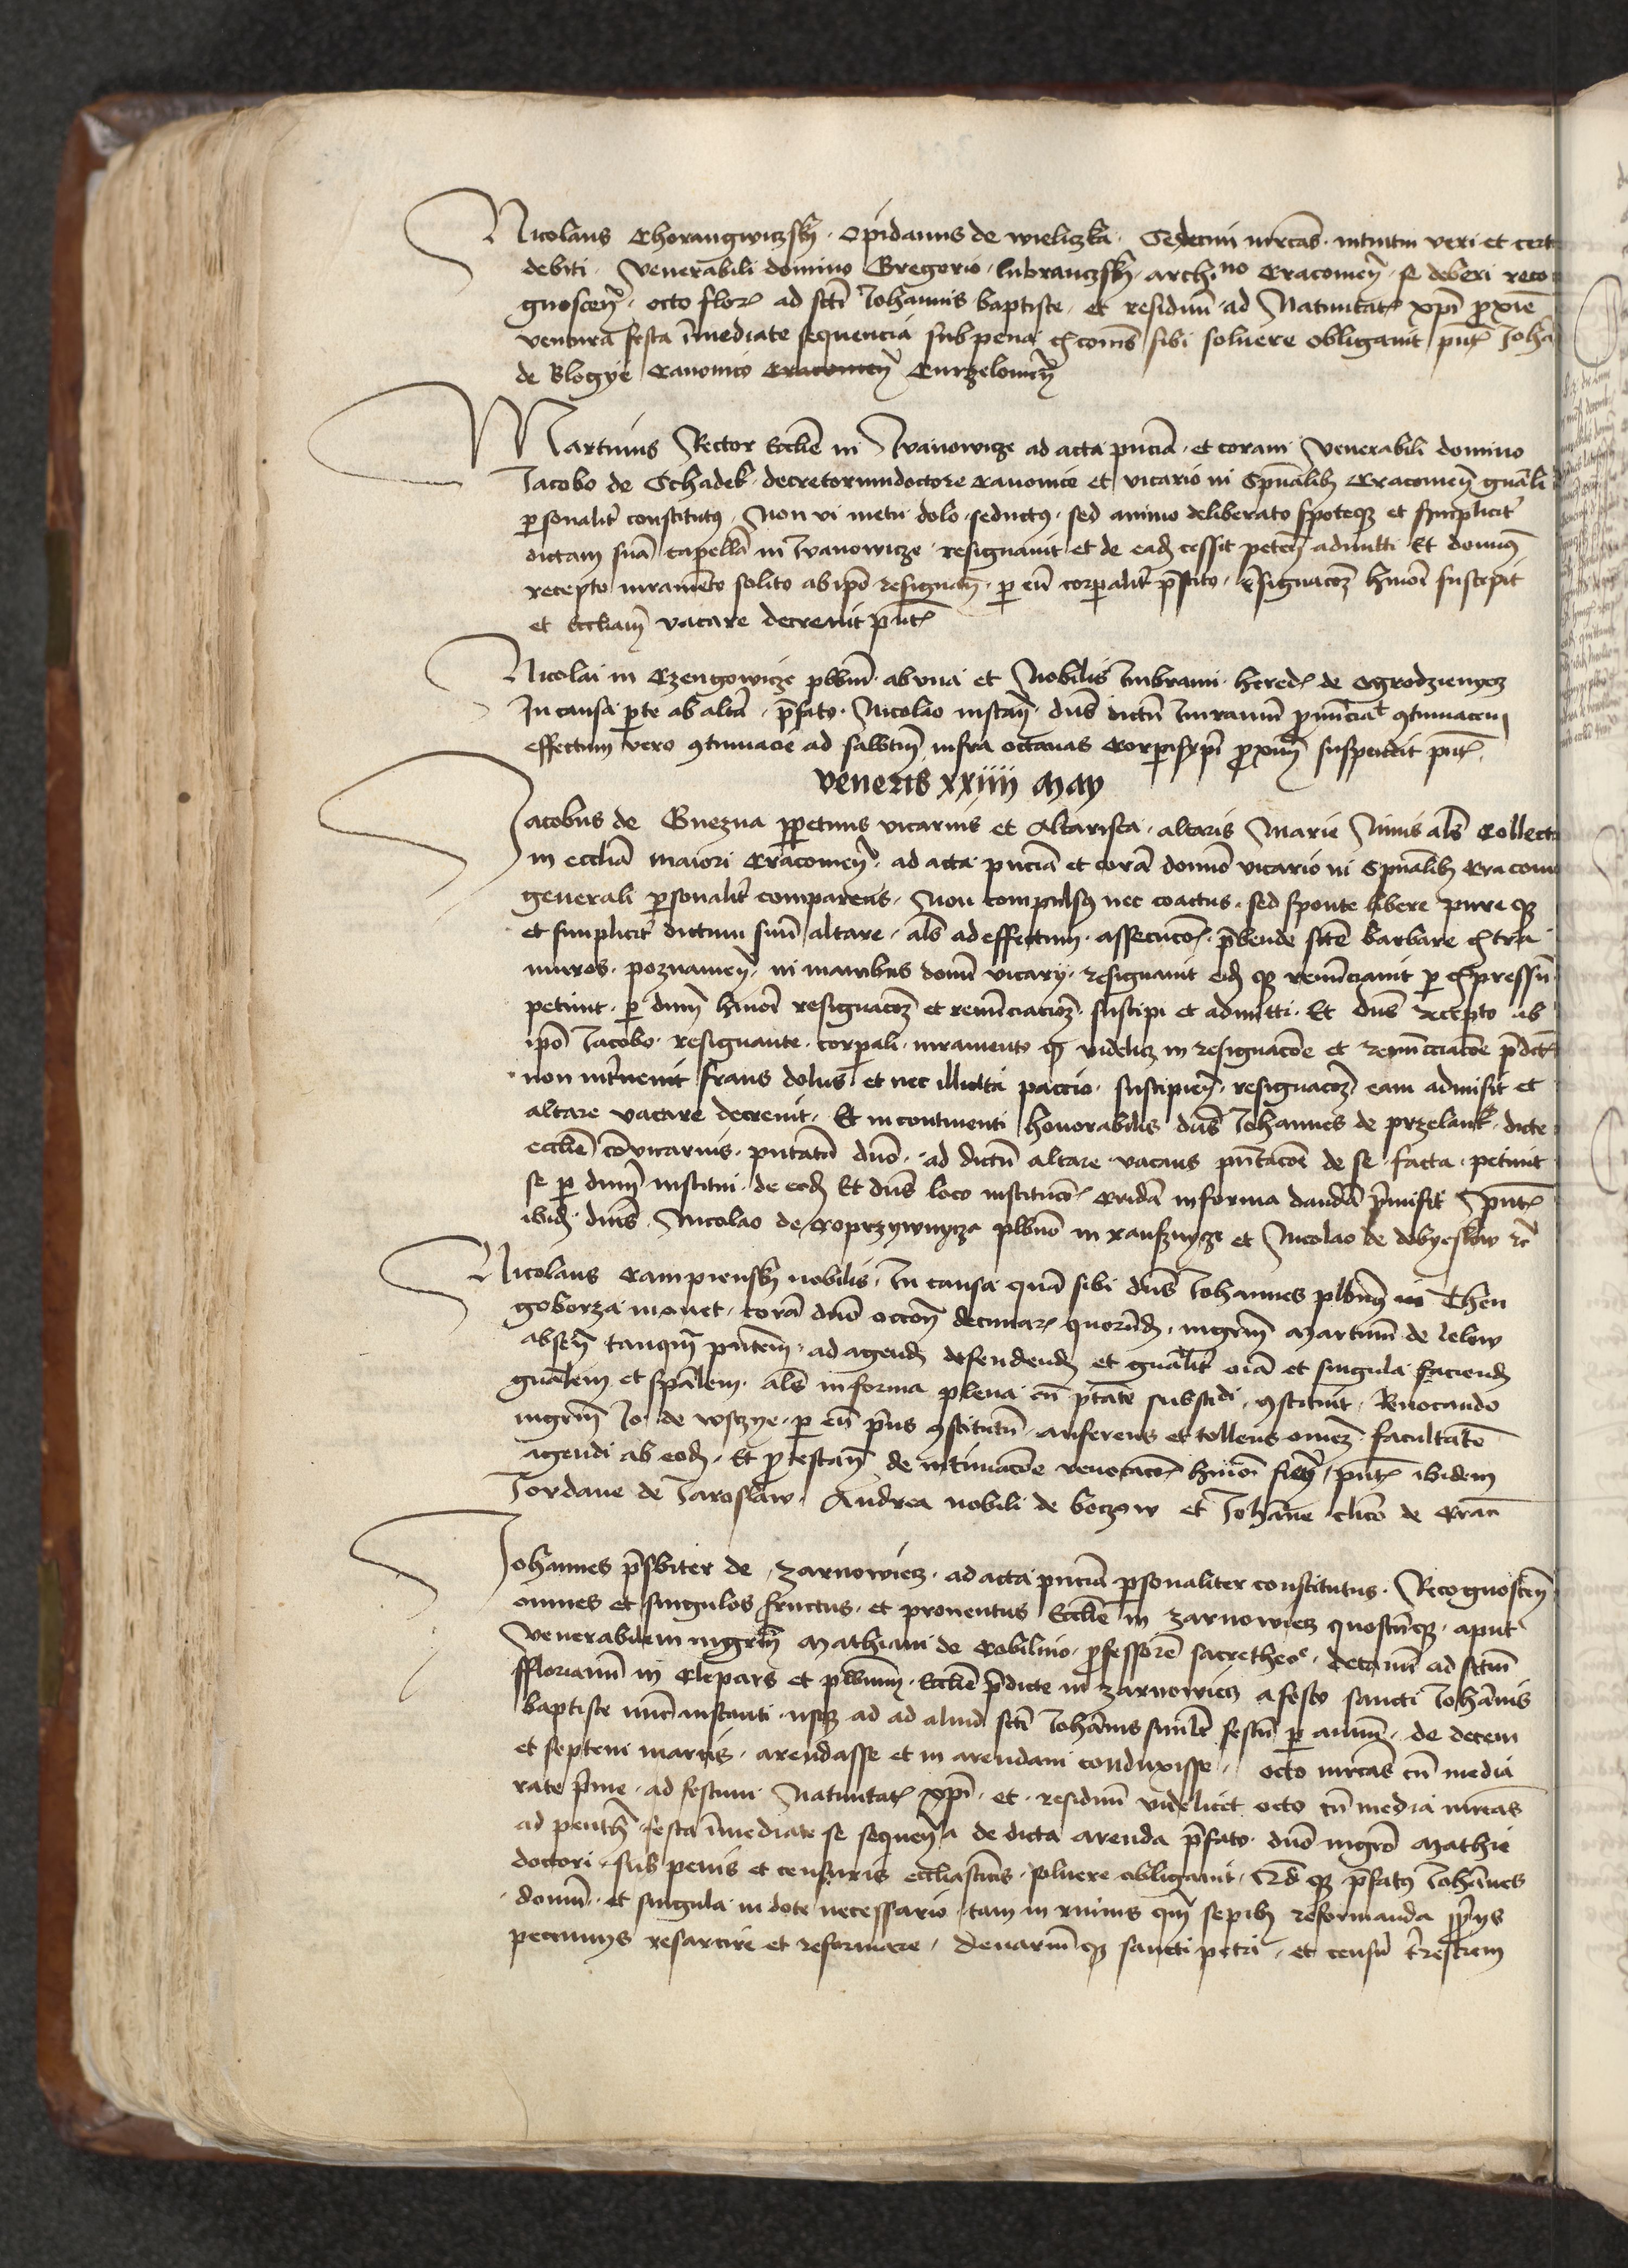 Nicolaus Chorangwiczsky opidanus de wieliczka Sedecim mrcas intuitu veri et cert
debiti venerabili domino Gregorio lubranczsky archino Cracomen se deberi reco
gnoscens octo flor ad scti Johannis baptiste et residuu ad Natiuitate xpi proxie
ventura festa imediate sequencia sub pena excoms sibi soluere obligauit pnt Joha
de Blogye Canonico Cracomen Curzelomen
Martinus Rector Ecclie in Iwanowicze ad acta pncia et coram venerabili domino
Jacobo de Schadek decretorum doctore canonico et vicario in Spualib Cracomen gnali
personalit constitutus Non vi metu dolo seductus sed animo deliberato sponteqz et simplicit
dictam sua capella in Iwanowicze resignauit et de ead cessit peten admitti Et dominus
recepto iuramento solito ab ipo resignan per eu corporalit prestito resignacoz hmoi suscepit
et eccliam vacare decreuit pnt
Nicolai in Czengowicze plbm ab vna et Nobilis Imbrami hered de ogrodzienyecz
In causa parte ab alta prefato Nicolao instan dns dictu Imramu pronunciat contumacem
effectum vero contumacie ad sabbtm infra octauas Corporis xpi proxim suspendit pnt
veneris xxiiii may
Jacobus de Gnezna perpetuus vicarius et Altarista altaris Marie Niuis als Collect
in ecclia maiori Cracomen ad acta pncia et cora domino vicario in Spualib Cracom
generali personalit comparens Non compulsus nec coactus sed sponte libere pure qz
et simplicit dictum suu altare als ad effectum assecucois prebende scte barbare extra
muros poznamen in manibus domi vicarij resignauit eid qz renunciauit per expressu
petiuit per dnm hmoi resignacoz et renunciacioz suscipi et admitti Et dns recepto ab
ipo Jacobo resignante corporali iuramento q videlicz in resignacoe et renuncciacoe predict
non interuenit fraus dolus et nec illicita paccio suscipien resignacoz eam admisit et
altare vacare decreuit Et in continenti honorabilis dns Johannes de przelank dicte
ecclie conuicarius pntatu duo ad dictu altare vacans pntacoe de se facta petiuit
se per dnm institui de eod Et dns loco institucois Crida in forma danda premisit pnt
ibid dnis Nicolao de Coprzywnycza plbno in ranszuycze et Nicolao de dobyeslow etc
Nicolaus Campiensky nobilis In causa qua sibi dns Johannes plbnus in Then
goborza mouet cora duo occon decimar quorund mgrm Martinu de lelow
absen tanqm pntem ad agend defendend et gnalit oia et singula faciend
gnalem et spalem als in forma plena cu ptate substdi constituit Reuocando
mgrm Jo de wsczye per eu prius constitutu auferens et tollens omez facultate
agendi ab eod Et protestan de intimacoe reuocacois hmoi fien pnt ibidem
Jordane de Jaroslaw Andrea nobili de boczow et Johanne clico de Crac
Johannes presbiter de zarnowiecz ad acta pncia personaliter constitutus Recognoscen
omnes et singulos fructus et prouentus Ecclie in zarnowiecz quoscunqz aput
venerabilem mgrm Mathiam de Cobilino professore sacre theo decanu ad sctum
fflorianu in Clepars et plbnum Ecclie predicte in zarnowiecz a festo sancti Johannis
baptiste nunc instanti vsqz ad ad aliud scti Johannis similit festu per annu de decem
et septem marcis arendasse et in arendam conduxisse octo mrcas cu media
rate prime ad festum Natiuitat xpi et residuu videlicet octo cu media mrcas
ad penth festa imediate se sequen a de dicta arenda prefato duo mgro Mathie
doctori sub penis et censuris ecclasticis soluere obligauit qz prefatus Johannes
domu et singula in dote necessario tam in ruinis qm sepib reformanda proprys
pecunnys resarcire et reformare denariuqz sancti petri et censu terrestrem